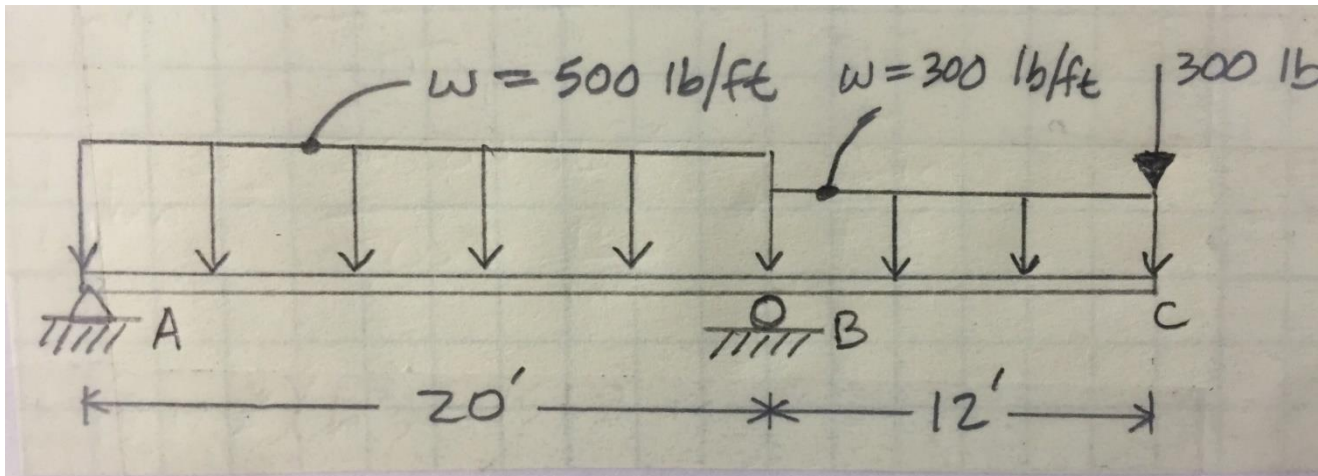 w = 500 lb/ft
w = 300 lb/ft
300 lb
A
B
C
20'
12'